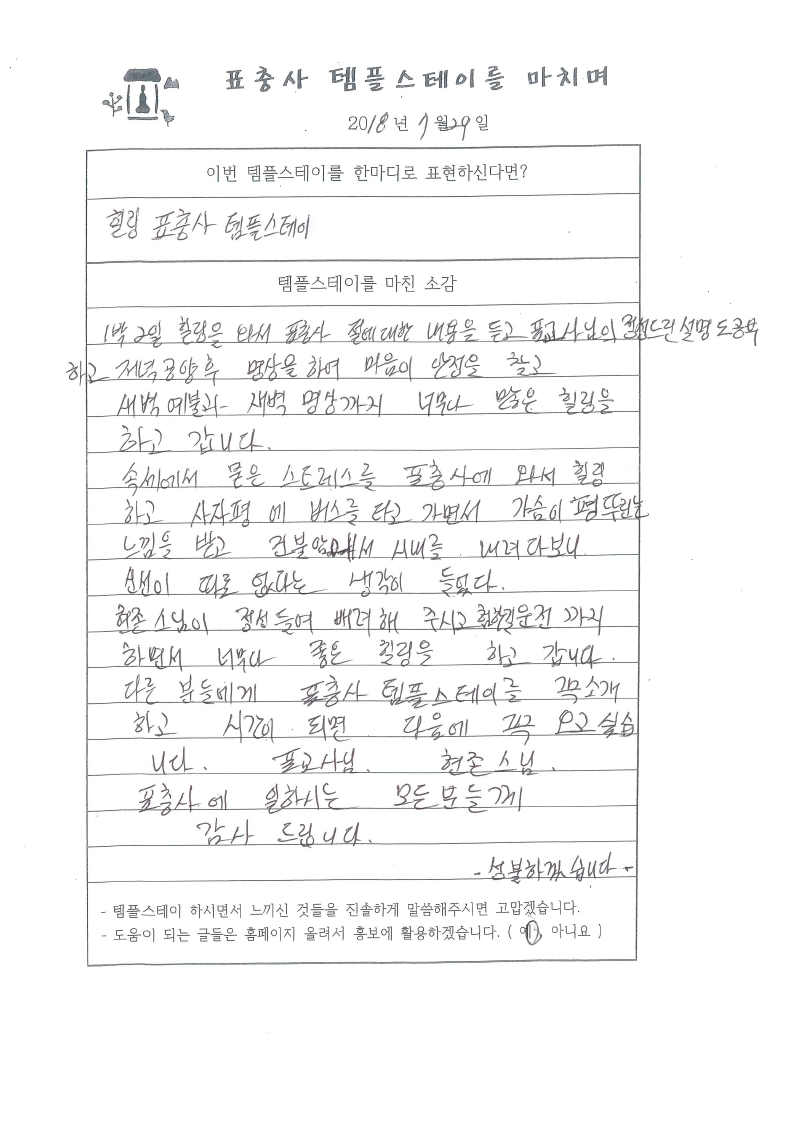 표충사 템플스테이를 마치며
2018년 7월 29일
이번 템플스테이를 한마디로 표현하신다면?
힐링 표충사 템플스테이
템플스테이를 마친 소감
1박 2일 힐링을 와서 표충사 절에대한 내용을 듣고 포교사님의 정성드린 설명도 공부
하고 저녁공양후 명상을 하여 마음이 안정을 찾고
새벽예불과 새벽 명상까지 너무나 많은 힐링을
하고 갑니다.
속세에서 묻은 스트레스를 표충사에 와서 힐링
하고 사자평에 버스를 타고 가면서 가슴이 펑뚜린는
느낌을 받고 시내를 내려다보니
신선이 따로 없다는 생각이 들었다.
현존스님이 정성들여 배려해 주시고 험한길운전까지
하면서 너무나 좋은 힐링을 하고 갑니다.
다른 분들에게 표충사 템플스테이를 꼭소개
하고 시간이 되면 다음에 꼭 오고싶습
니다. 포교사님. 현존스님.
표충사에 일하시는 모든분들께
감사 드립니다.
- 성불하겠습니다 -
- 템플스테이 하시면서 느끼신 것들을 진솔하게 말씀해주시면 고맙겠습니다.
- 도움이 되는 글들은 홈페이지 올려서 홍보에 활용하겠습니다. ( 예, 아니요 )